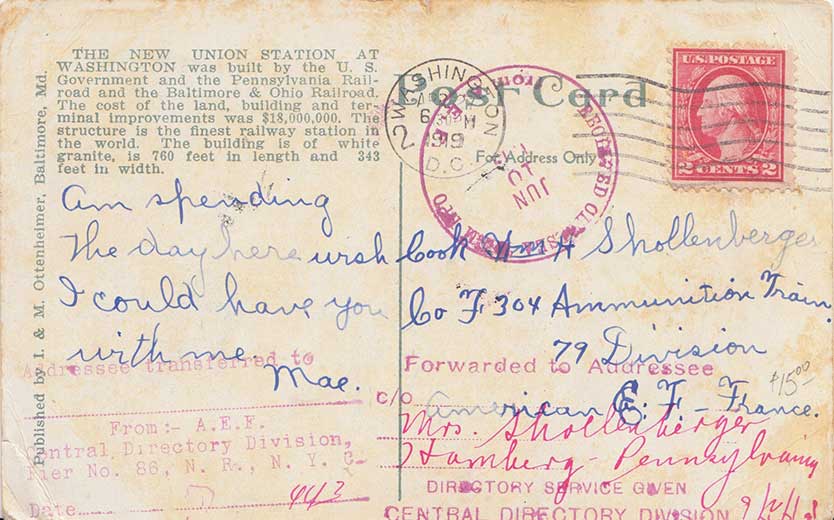 THE NEW UNION STATION AT
WASHINGTON was built by the U. S.
Government and the Pennsylvania Rail-
road and the Baltimore & Ohio Railroad.
The cost of the land, building and ter-
minal improvements was $18,000,000. The
structure is the finest railway station in
the world. The building is of white
granite, is 760 feet in length and 343
feet in width.
Published by I. & M. Ottenheimer, Baltimore, Md.
Am spending
the day here wish
I could have you
with me.
Mae.
Addressee transferred to
From:- A.E.F.
Central Directory Division,
Pier No. 86, N. R., N. Y. C.
Date
443
Post Card
For Address Only
WASHINGTON
2
6
1919
D.C.
JUN
10
U.S. POSTAGE
2 CENTS 2
Cook Wm H Shollenberger
Co F 304 Ammunition Train.
79 Division
Forwarded to Addressee
$15.00
American E. F. - France.
C/O
Mrs. Shollenberger
Hamberg - Pennsylvania
DIRECTORY SERVICE GIVEN
CENTRAL DIRECTORY DIVISION